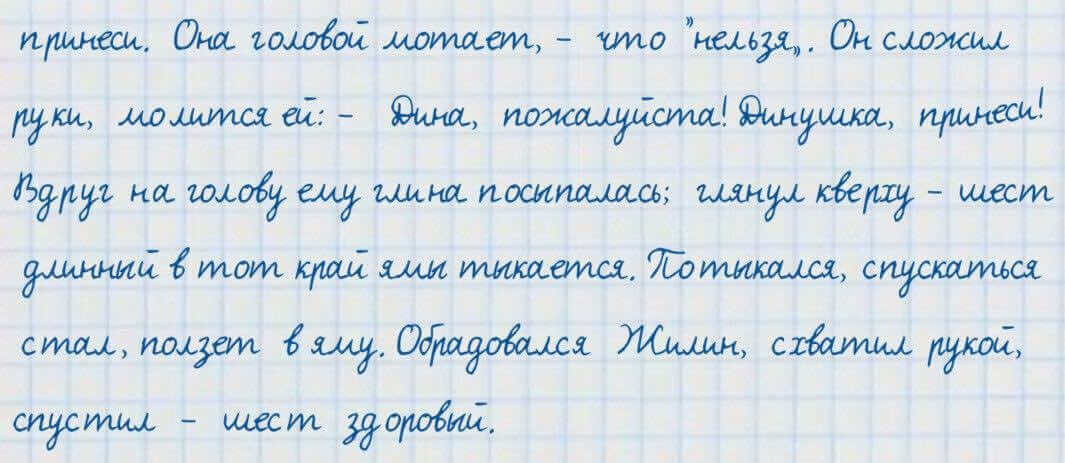 принеси. Она головой мотает, - что "нельзя„. Он сложил
руки, молится ей: - Дина, пожалуйста! Динушка, принеси!
Вдруг на голову ему глина посыпалась; глянул кверху - шест
длинный в тот край ямы тыкается. Потыкался, спускаться
стал, ползет в яму. Обрадовался Жилин, схватил рукой,
спустил - шест здоровый.